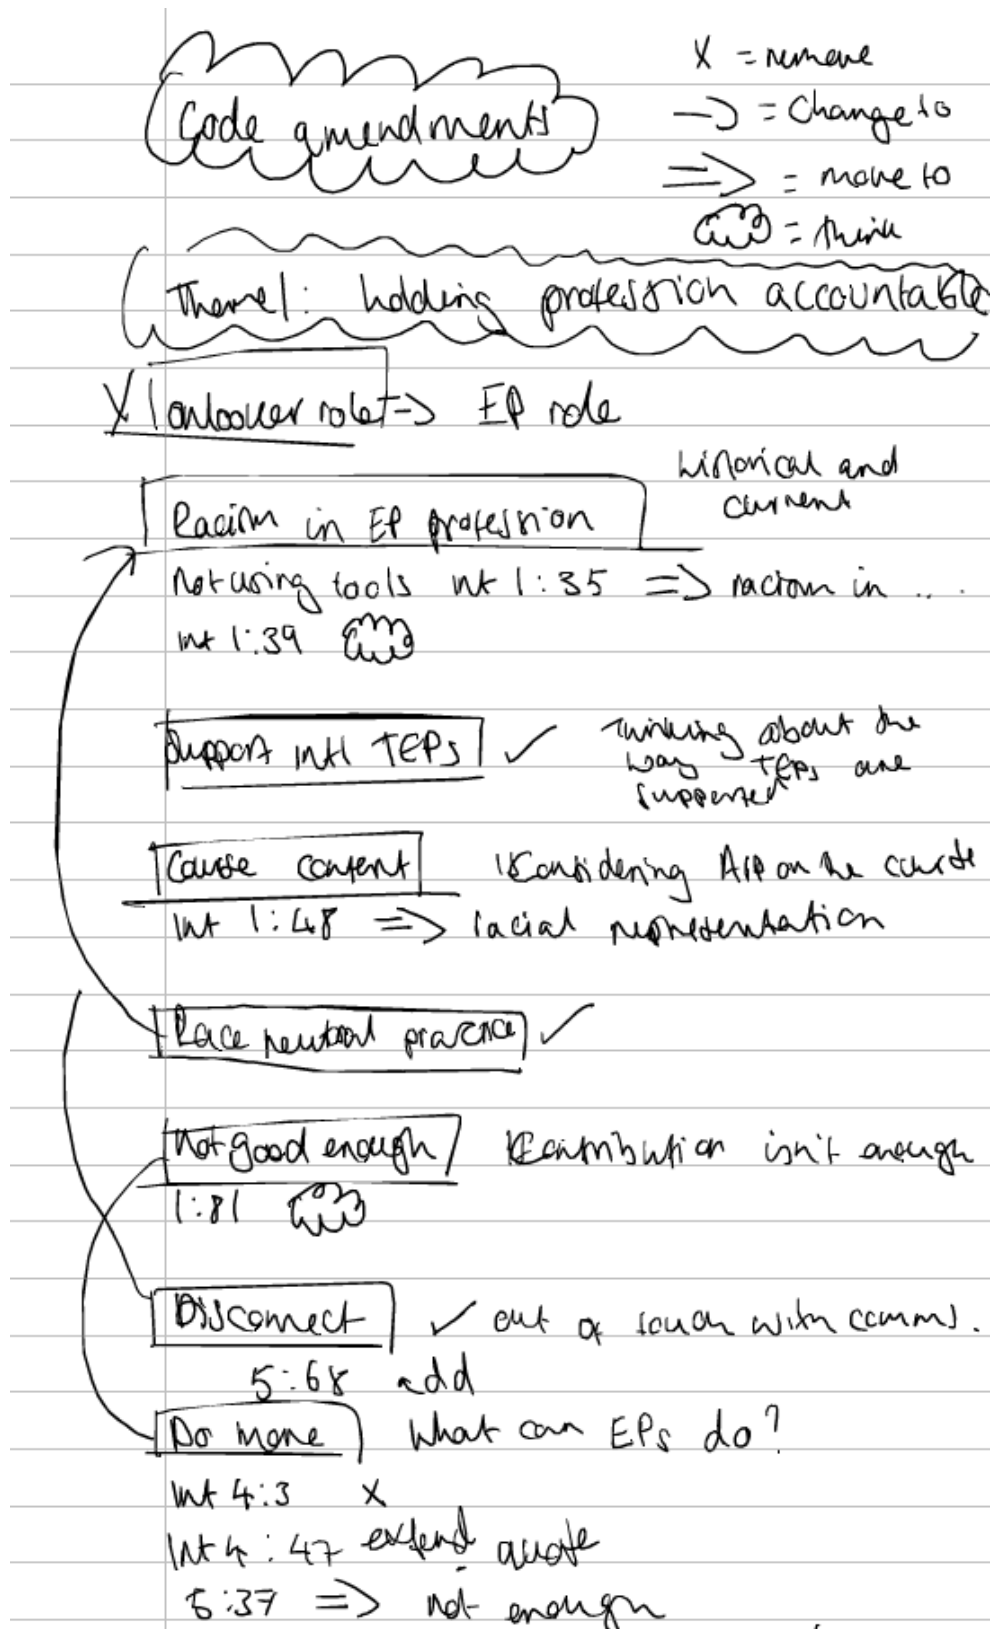 Code amendments
X = remove
-> = Change to
=> = move to
= think
Theme 1: holding profession accountable
X onlooker role -> EP role
Racism in EP profession
historical and
current
Not using tools int 1:35 => racism in ...
int 1:39
Support intl TEPs ✓
Thinking about the
way TEPs are
supported
Course content
Considering ARP on the course
Int 1:48 => racial representation
Race neutral practice ✓
Not good enough
Contribution isn't enough
1:81
Disconnect ✓ out of touch with comms.
5:68 add
Do more What can EPs do?
Int 4:3 X
Int 4:47 extend quote
5:37 => not enough